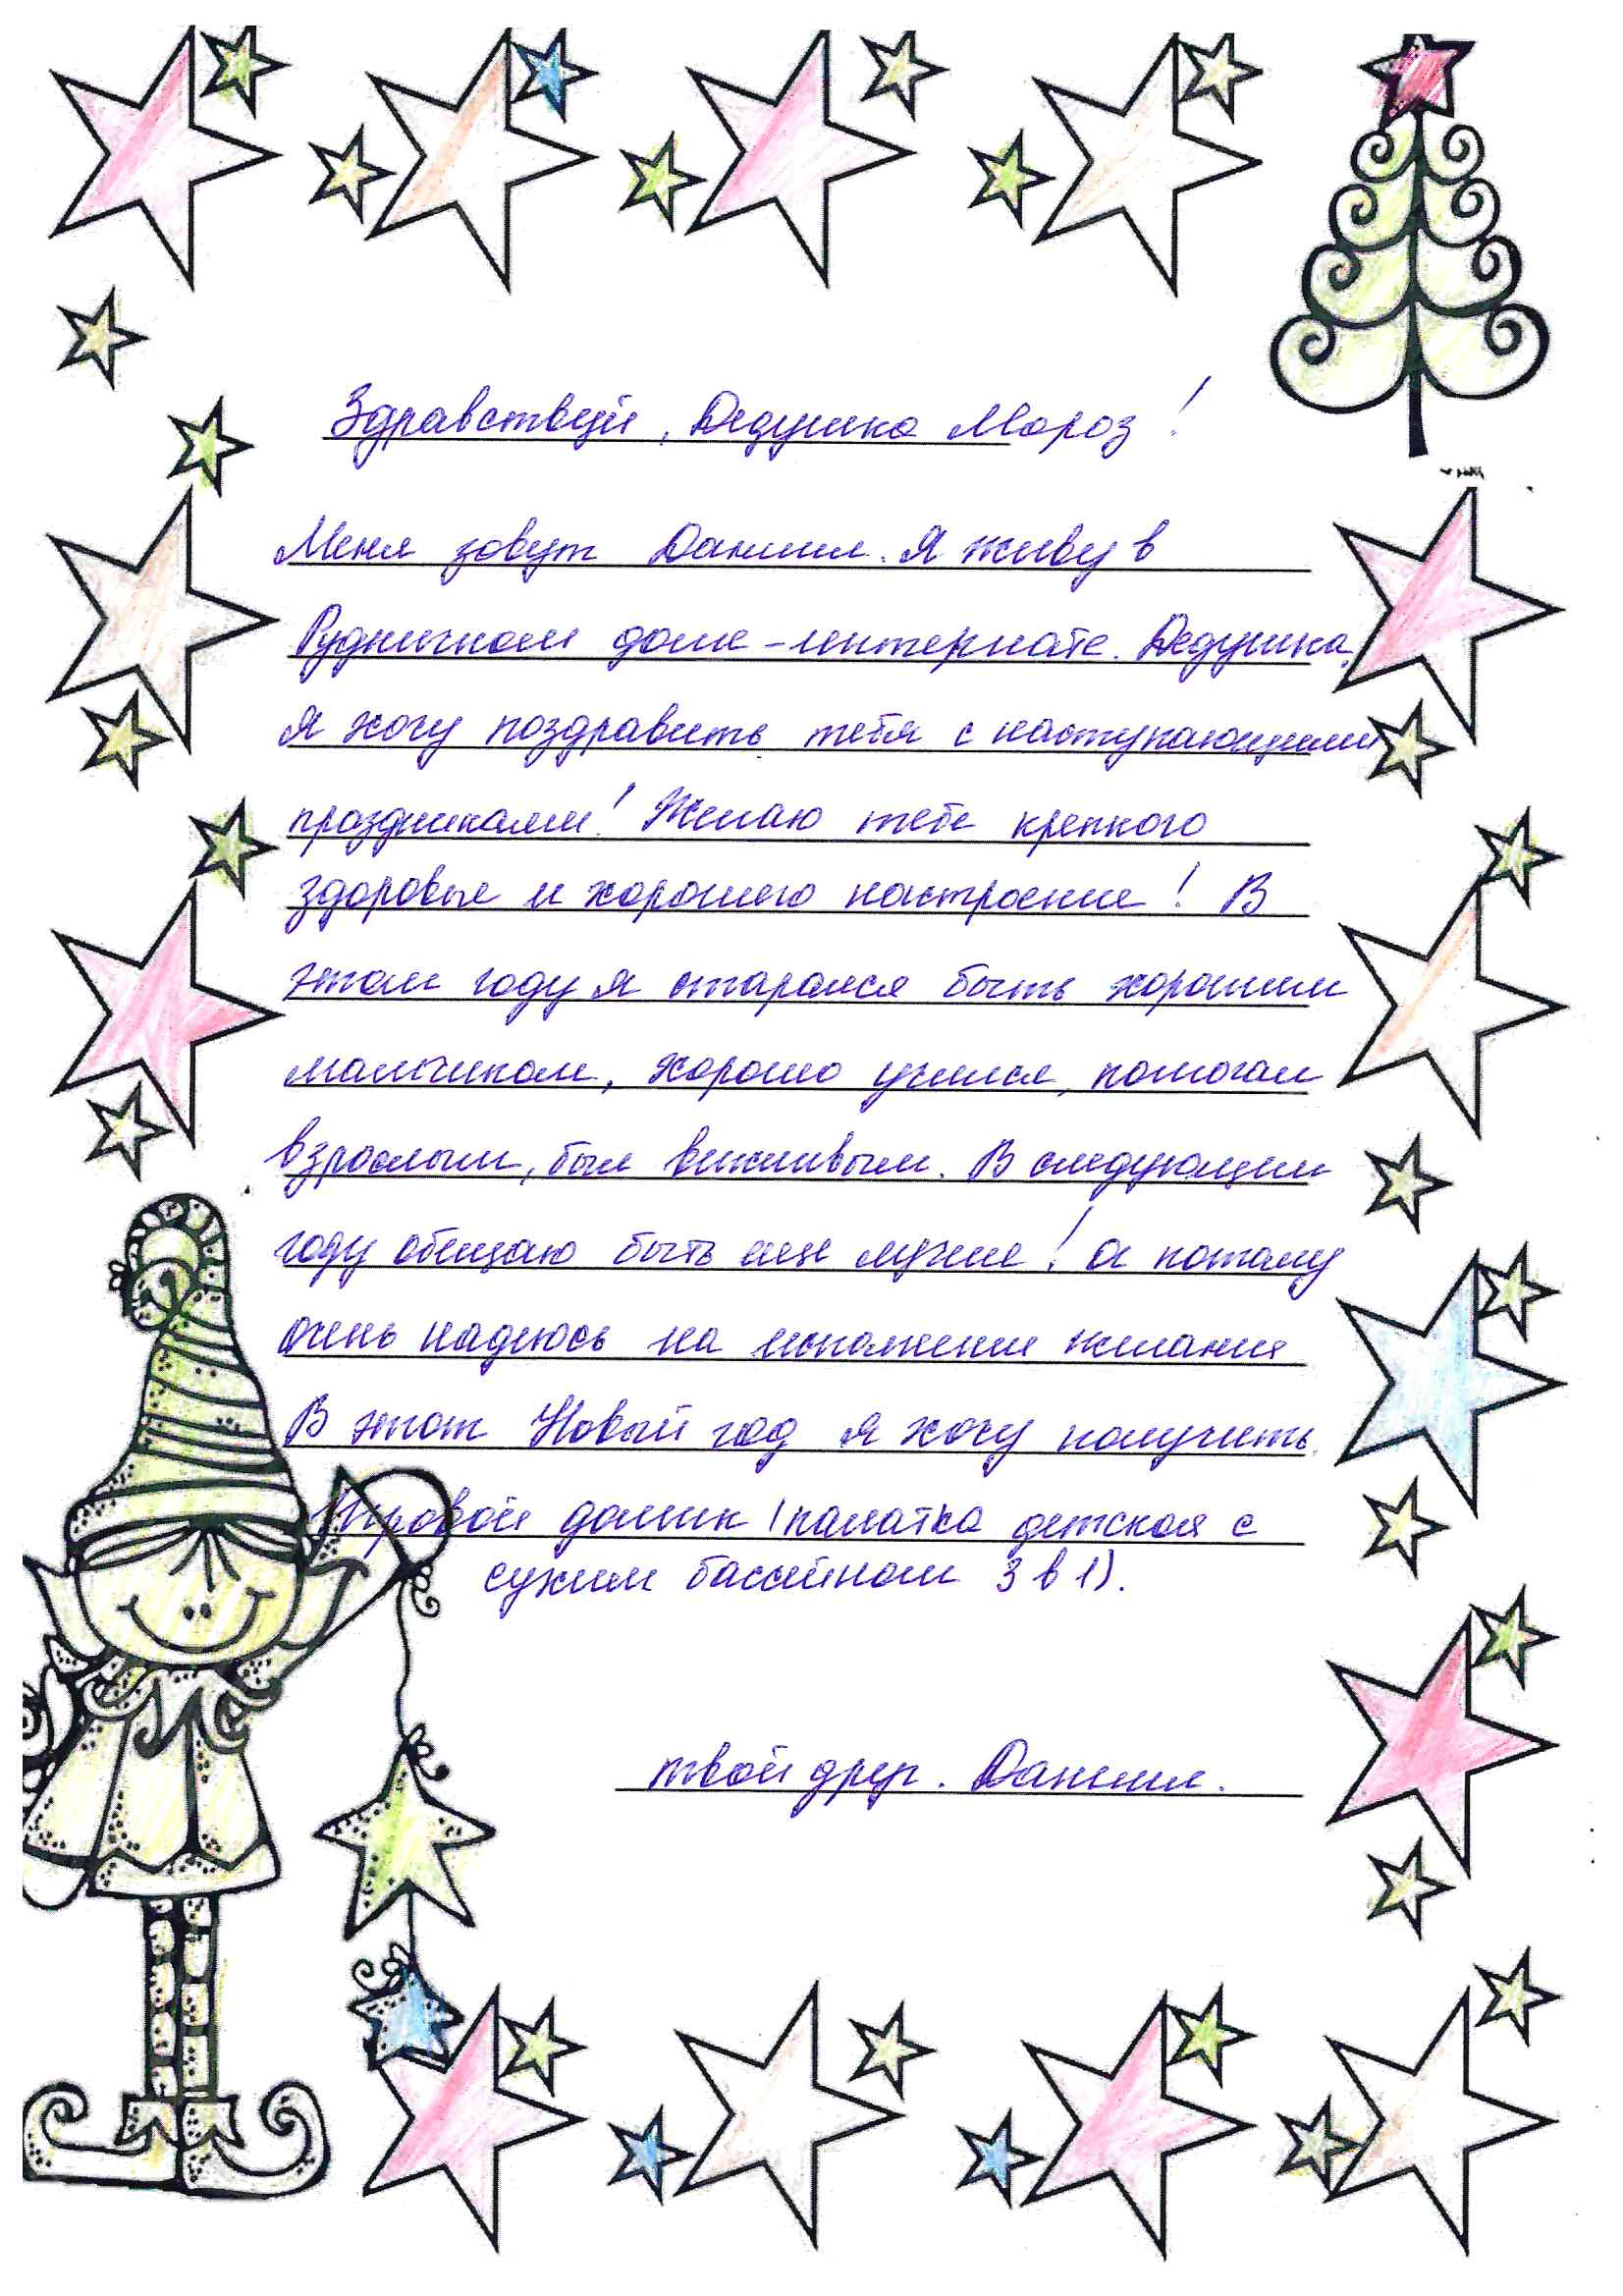 Здравствуй, Дедушка Мороз!
Меня зовут Даниил. Я живу в
Рудничном доме-интернате. Дедушка,
я хочу поздравить тебя с наступающими
праздниками! Желаю тебе крепкого
здоровья и хорошего настроения! В
этом году я старался быть хорошим
мальчиком, хорошо учился, помогал
взрослым, был вежливым. В следующем
году обещаю быть еще лучше! А потому
очень надеюсь на исполнение желания
В этот Новый год я хочу получить
Игровой домик (палатка детская с
сухим бассейном 3 в 1).
твой друг. Даниил.